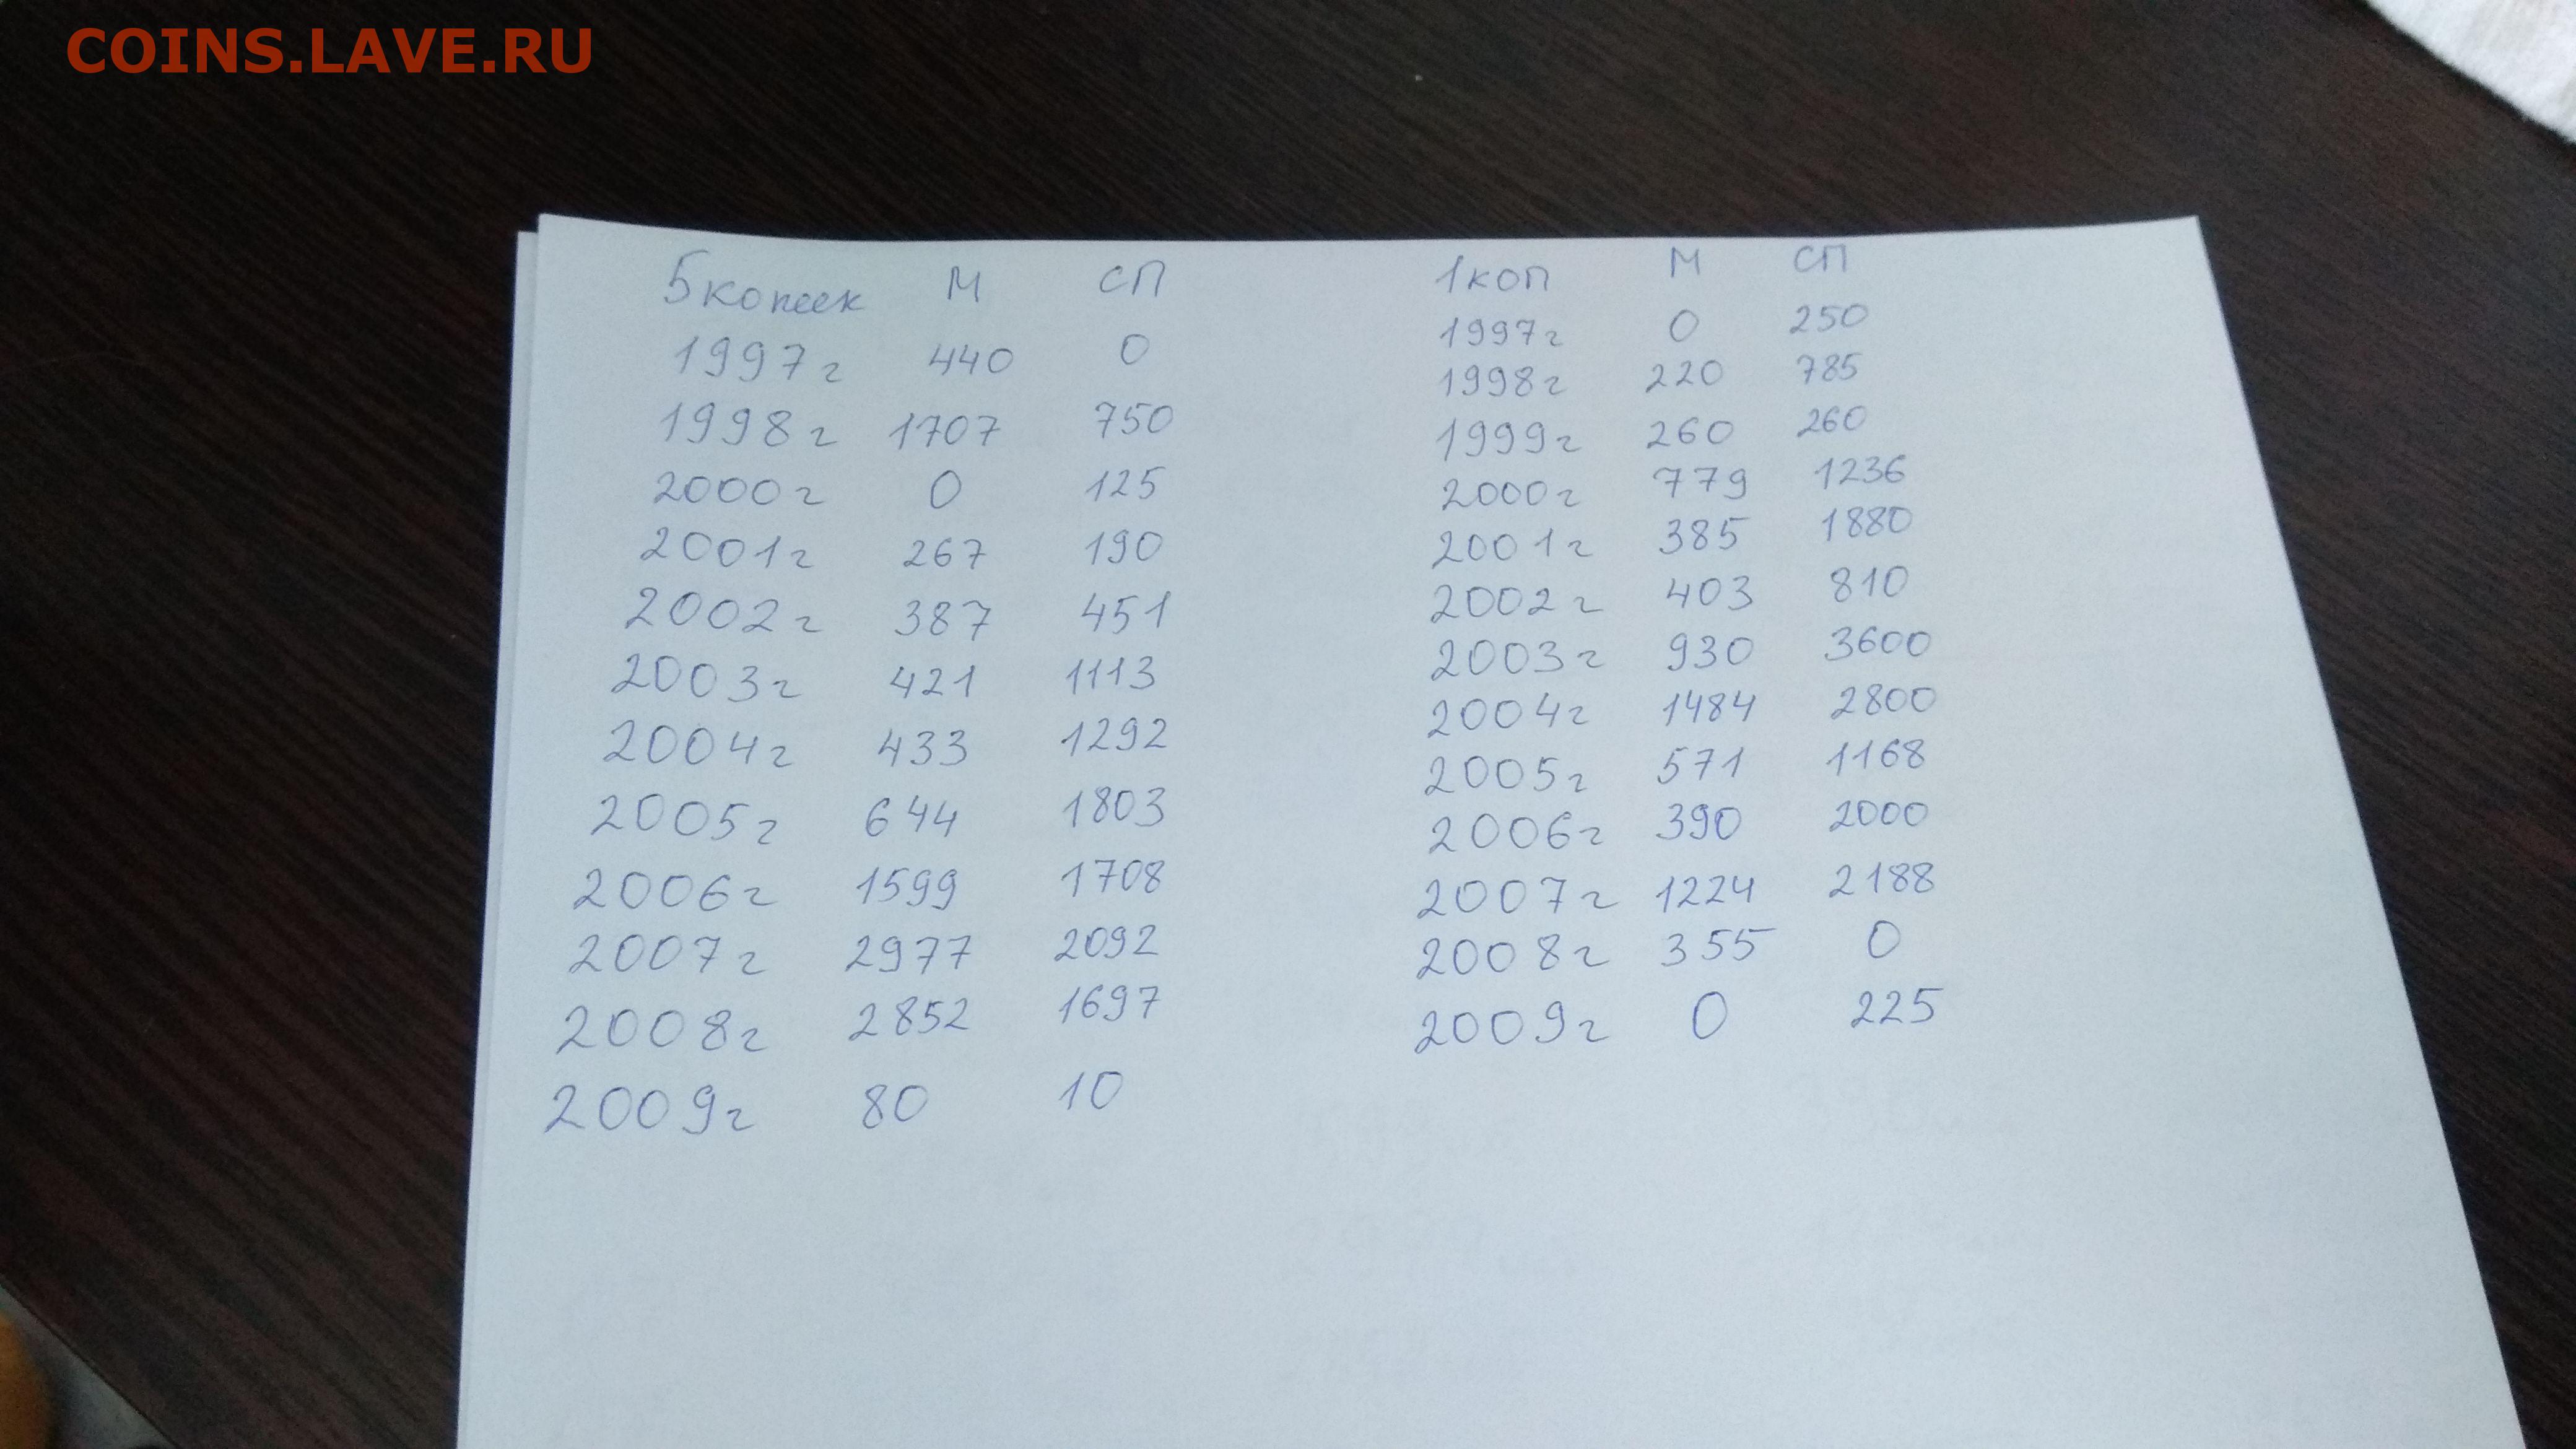 COINS.LAVE.RU
5 копеек М СП
1997г 440 0
1998г 1707 750
2000г 0 125
2001г 267 190
2002г 387 451
2003г 421 1113
2004г 433 1292
2005г 644 1803
2006г 1599 1708
2007г 2977 2092
2008г 2852 1697
2009г 80 10
1 коп М СП
1997г 0 250
1998г 220 785
1999г 260 260
2000г 779 1236
2001г 385 1880
2002г 403 810
2003г 930 3600
2004г 1484 2800
2005г 571 1168
2006г 390 2000
2007г 1224 2188
2008г 355 0
2009г 0 225